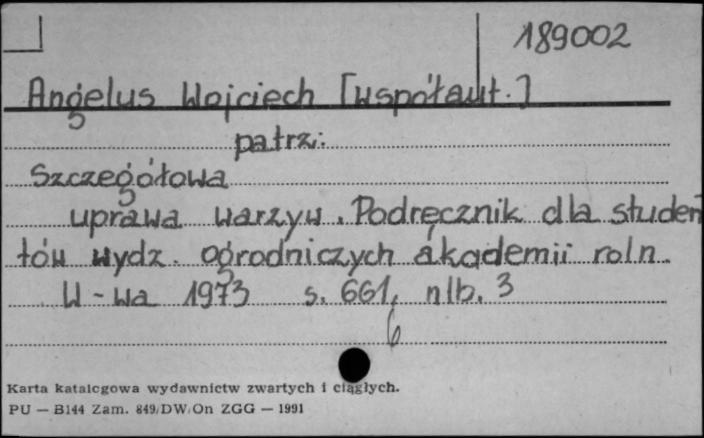 189002
Angelus Wojciech [współaut.]
patrz:
Szczegółowa
uprawa warzyw. Podręcznik dla studen
tów wydz. ogrodniczych akademii roln.
W-wa 1973 s. 661, nlb. 3
6
Karta katalogowa wydawnictw zwartych i ciągłych.
PU — B144 Zam. 849/DW/On ZGG — 1991